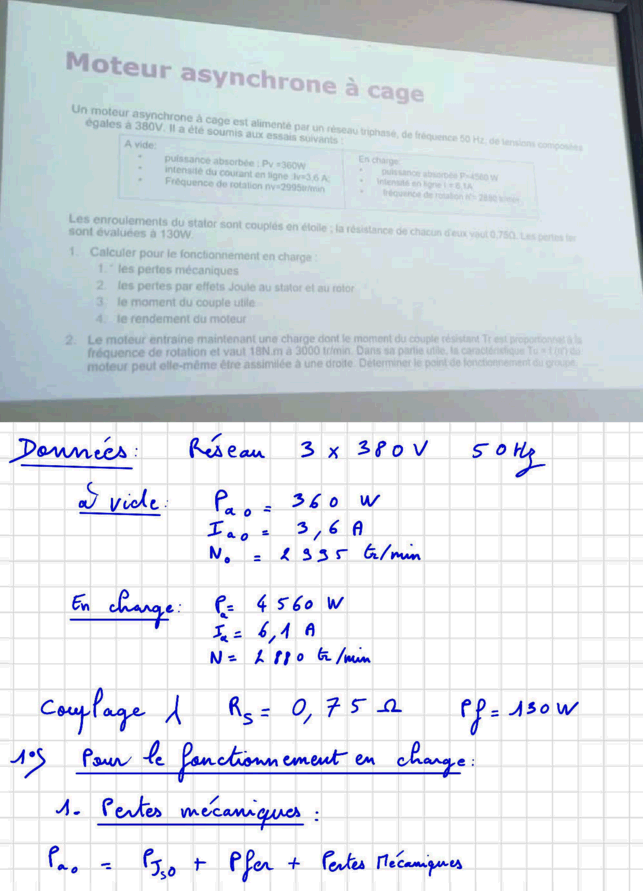 Moteur asynchrone à cage
Un moteur asynchrone à cage est alimenté par un réseau triphasé, de fréquence 50 Hz, de tensions composées
égales à 380V. Il a été soumis aux essais suivants :
A vide:
• puissance absorbée : Pv =360W
• intensité du courant en ligne :Iv=3,6 A;
• Fréquence de rotation nv=2995tr/min
En charge:
• puissance absorbée P=4560 W
• Intensité en ligne I = 6,1A
• fréquence de rotation N= 2880 tr/min
Les enroulements du stator sont couplés en étoile ; la résistance de chacun d'eux vaut 0,75Ω. Les pertes fer
sont évaluées à 130W.
1. Calculer pour le fonctionnement en charge :
1. les pertes mécaniques
2. les pertes par effets Joule au stator et au rotor
3. le moment du couple utile
4. le rendement du moteur
2. Le moteur entraine maintenant une charge dont le moment du couple résistant Tr est proportionnel à la
fréquence de rotation et vaut 18N.m à 3000 tr/min. Dans sa partie utile, la caractéristique Tu = f (n) du
moteur peut elle-même être assimilée à une droite. Déterminer le point de fonctionnement du groupe.
Données: Réseau 3 x 380V 50Hz
à vide: Pa0 = 360 W
Ia0 = 3,6 A
N0 = 2995 tr/min
En charge: Pa = 4560 W
Ia = 6,1 A
N = 2880 tr/min
Couplage λ Rs = 0,75 Ω Pf = 130W
1°) Pour le fonctionnement en charge:
1. Pertes mécaniques :
Pa0 = PJs0 + Pfer + Pertes Mécaniques